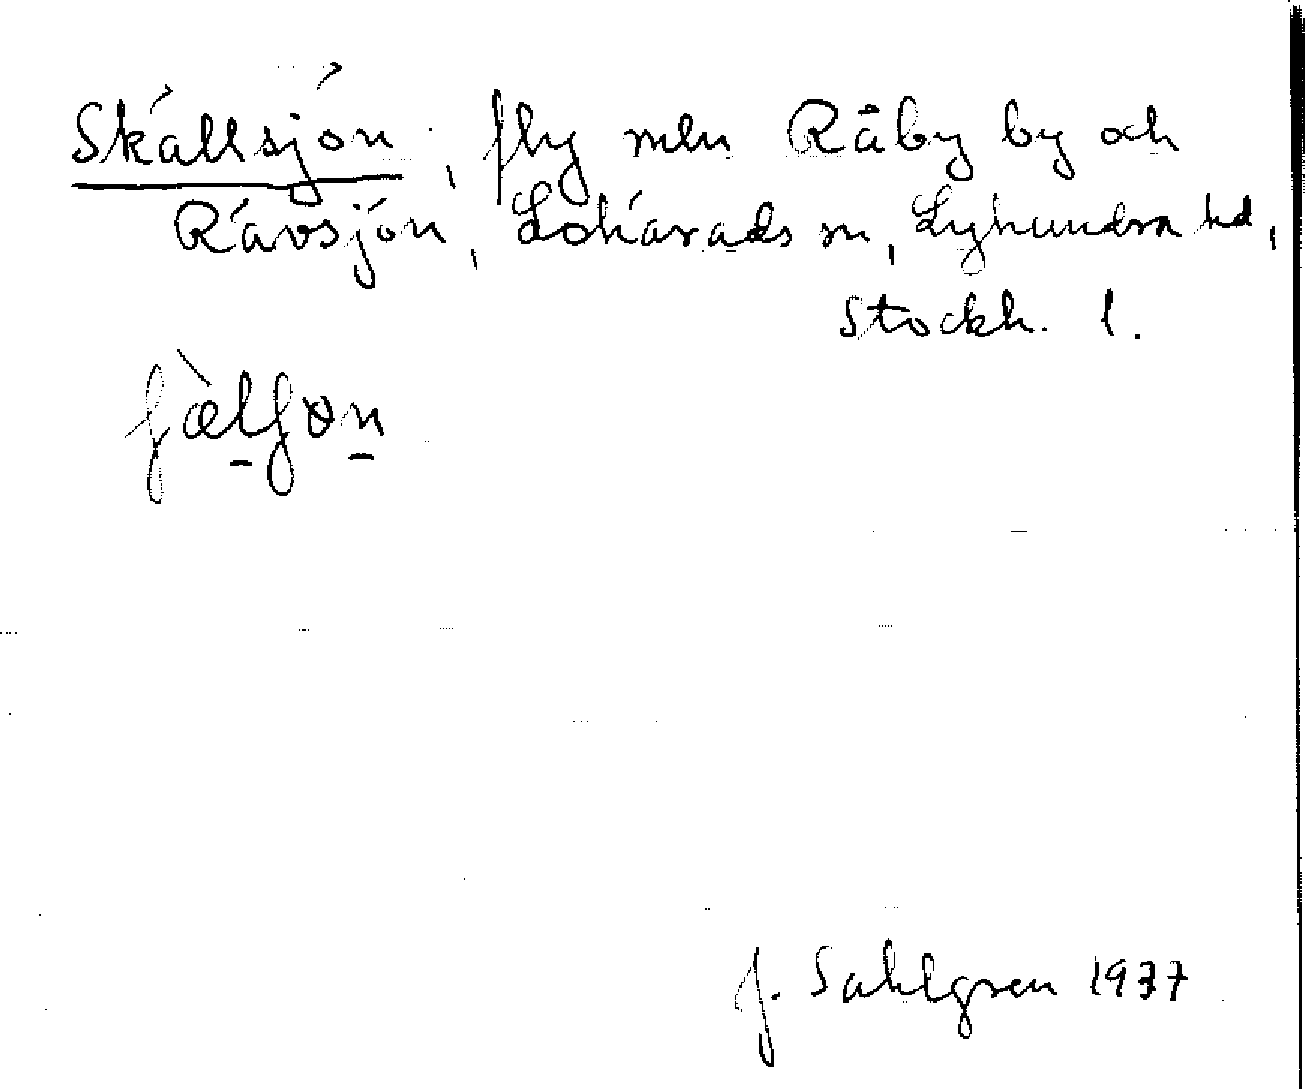 Skällsjön, fly mln Råby by och
Rävsjön, Lohärads sn, Lyhundra hd,
Stockh. l.
ʃæ̀lʃøn
J. Sahlgren 1937